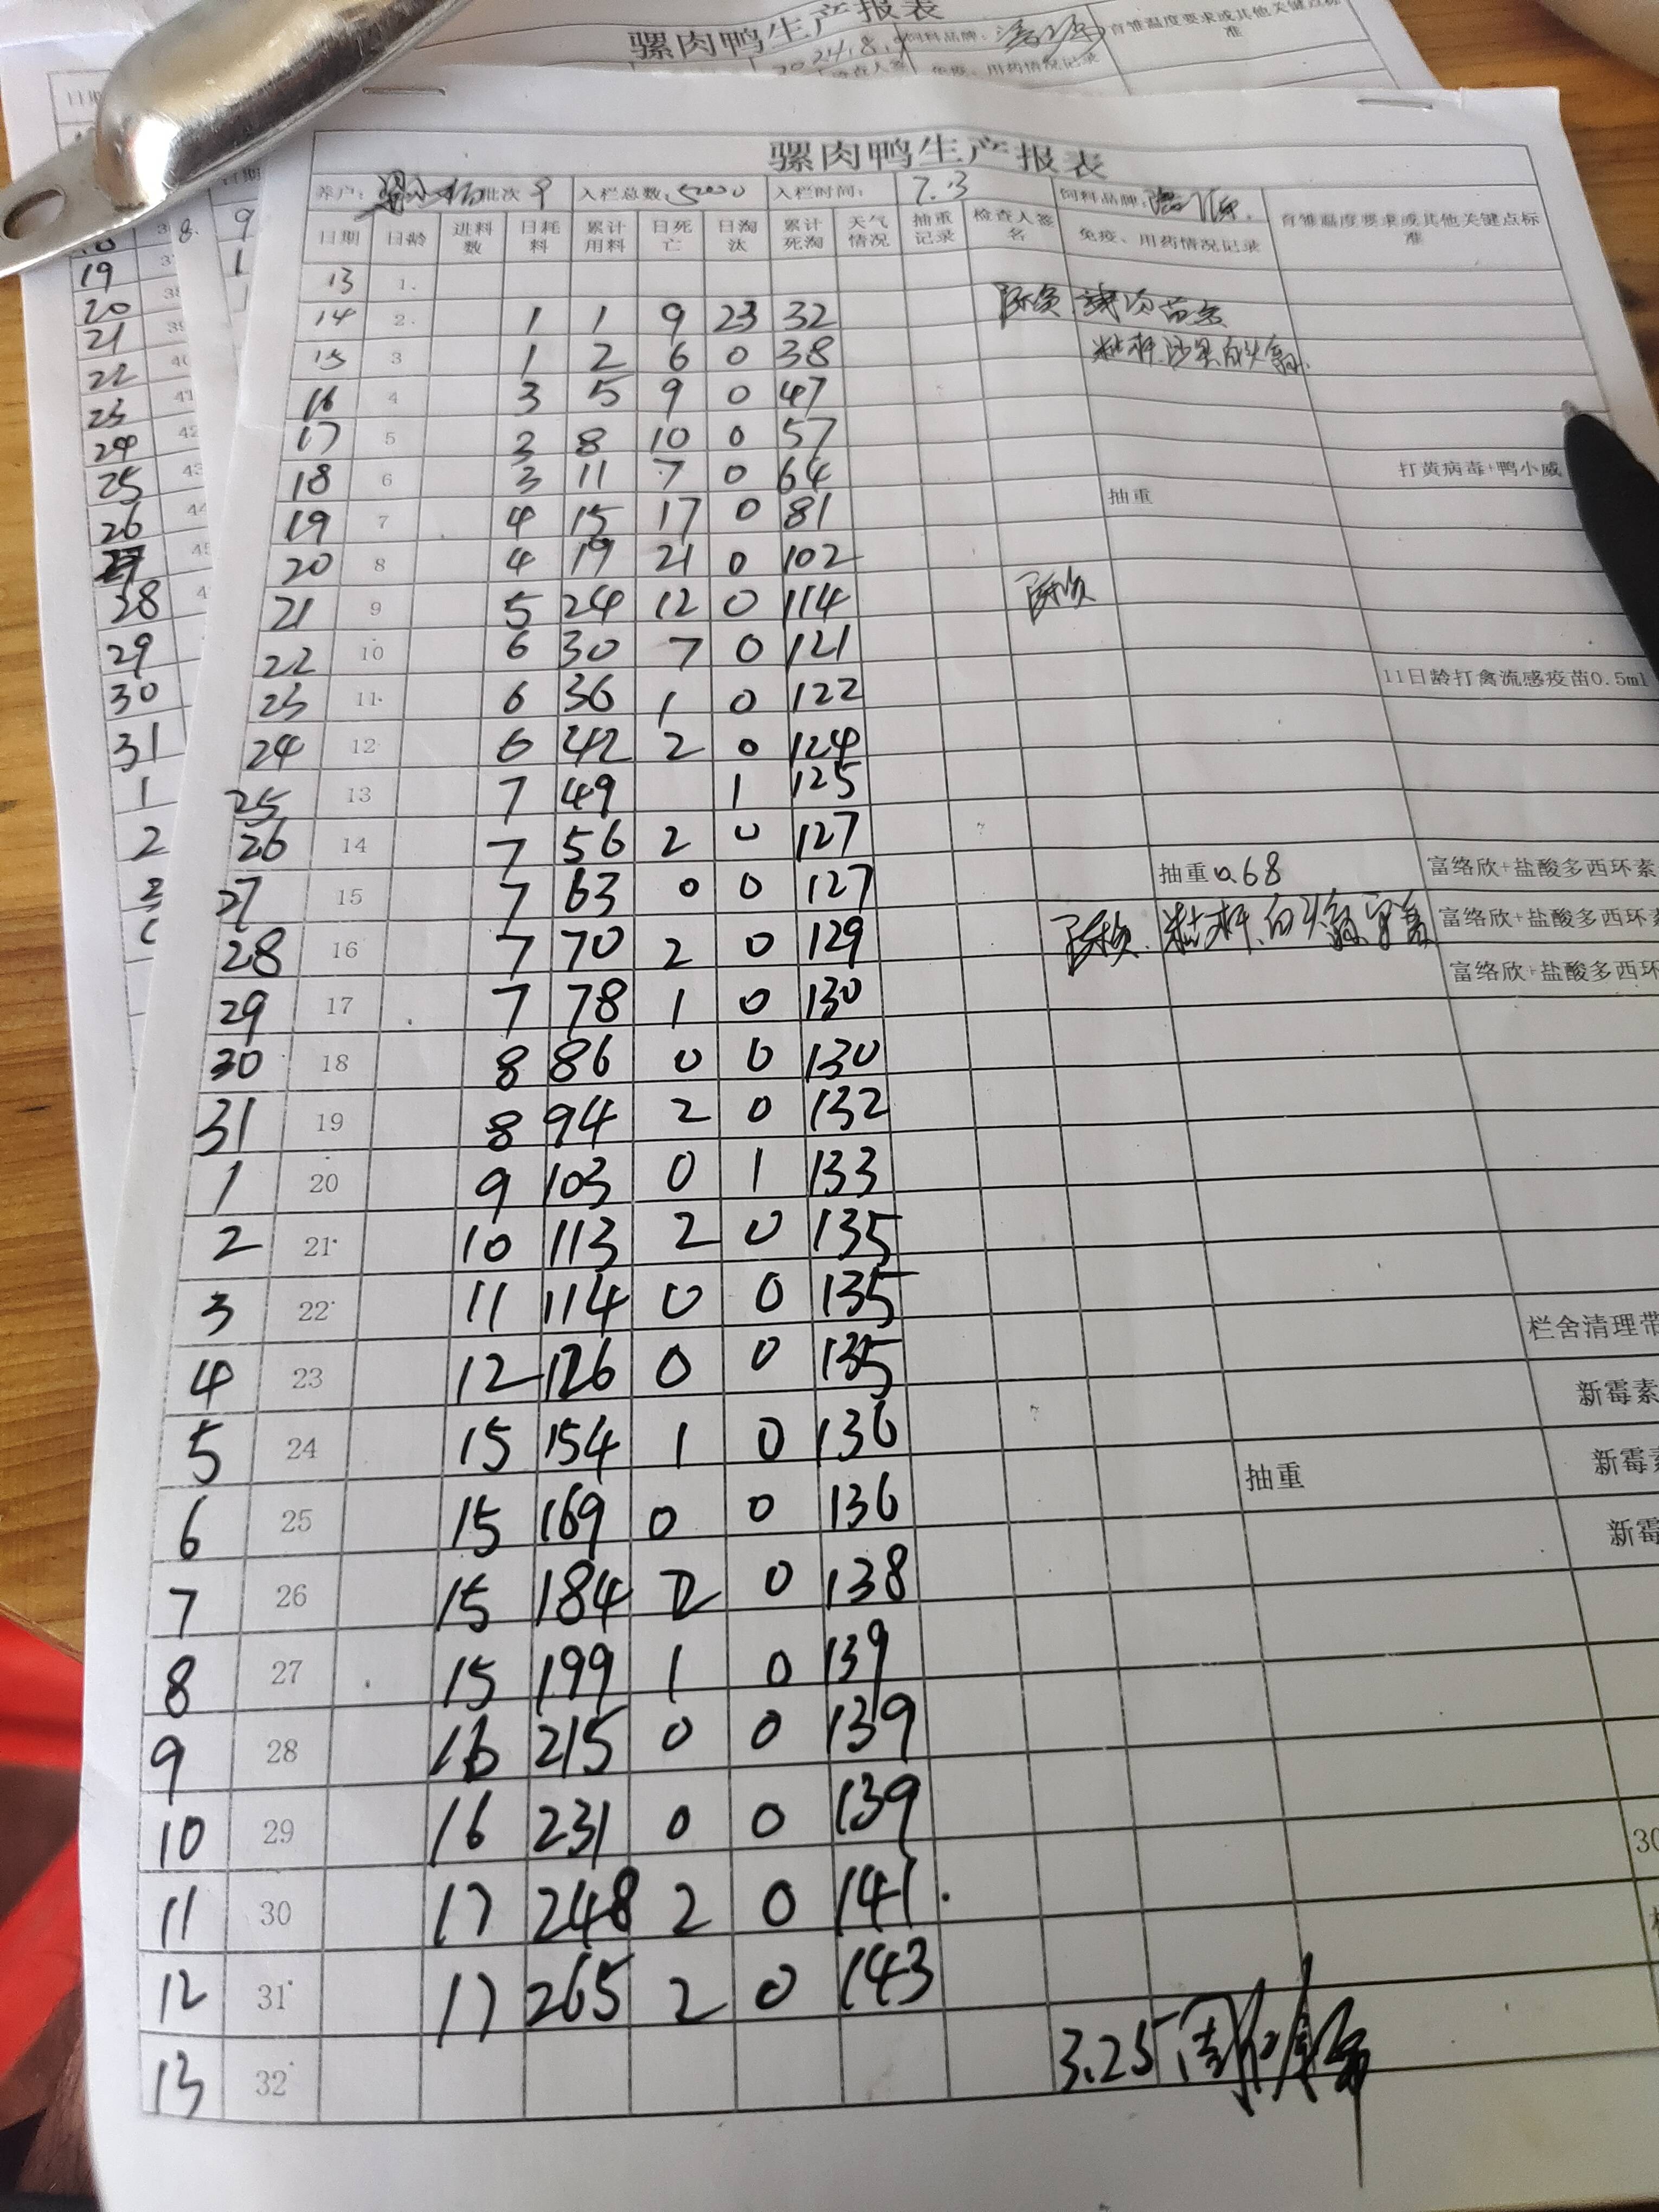 骡肉鸭生产报表
2024.8. 饲料品牌: 育雏温度要求或其他关键点标准
免疫、用药情况记录
骡肉鸭生产报表
养户: 批次 9 入栏总数: 5200 入栏时间: 7.13 饲料品牌: 育雏温度要求或其他关键点标准
日期 日龄 进料数 日耗料 累计用料 日死亡 日淘汰 累计死淘 天气情况 抽重记录 检查人签名 免疫、用药情况记录
13 1
14 2 1 1 9 23 32
15 3 1 2 6 0 38
16 4 3 5 9 0 47
17 5 3 8 10 0 57
18 6 3 11 7 0 64 打黄病毒+鸭小威
19 7 4 15 17 0 81 抽重
20 8 4 19 21 0 102
21 9 5 24 12 0 114
22 10 6 30 7 0 121
23 11 6 36 1 0 122 11日龄打禽流感疫苗0.5ml
24 12 6 42 2 0 124
25 13 7 49 1 125
26 14 7 56 2 0 127
27 15 7 63 0 0 127 抽重0.68 富络欣+盐酸多西环素
28 16 7 70 2 0 129 富络欣+盐酸多西环素
29 17 7 78 1 0 130 富络欣+盐酸多西环
30 18 8 86 0 0 130
31 19 8 94 2 0 132
1 20 9 103 0 1 133
2 21 10 113 2 0 135
3 22 11 114 0 0 135 栏舍清理带
4 23 12 126 0 0 135 新霉素
5 24 15 154 1 0 136 抽重 新霉素
6 25 15 169 0 0 136 新霉
7 26 15 184 2 0 138
8 27 15 199 1 0 139
9 28 16 215 0 0 139
10 29 16 231 0 0 139 30
11 30 17 248 2 0 141
12 31 17 265 2 0 143
13 32 3.25
8
9
19
20
21
22
23
24
25
26
27
28
29
30
31
1
2